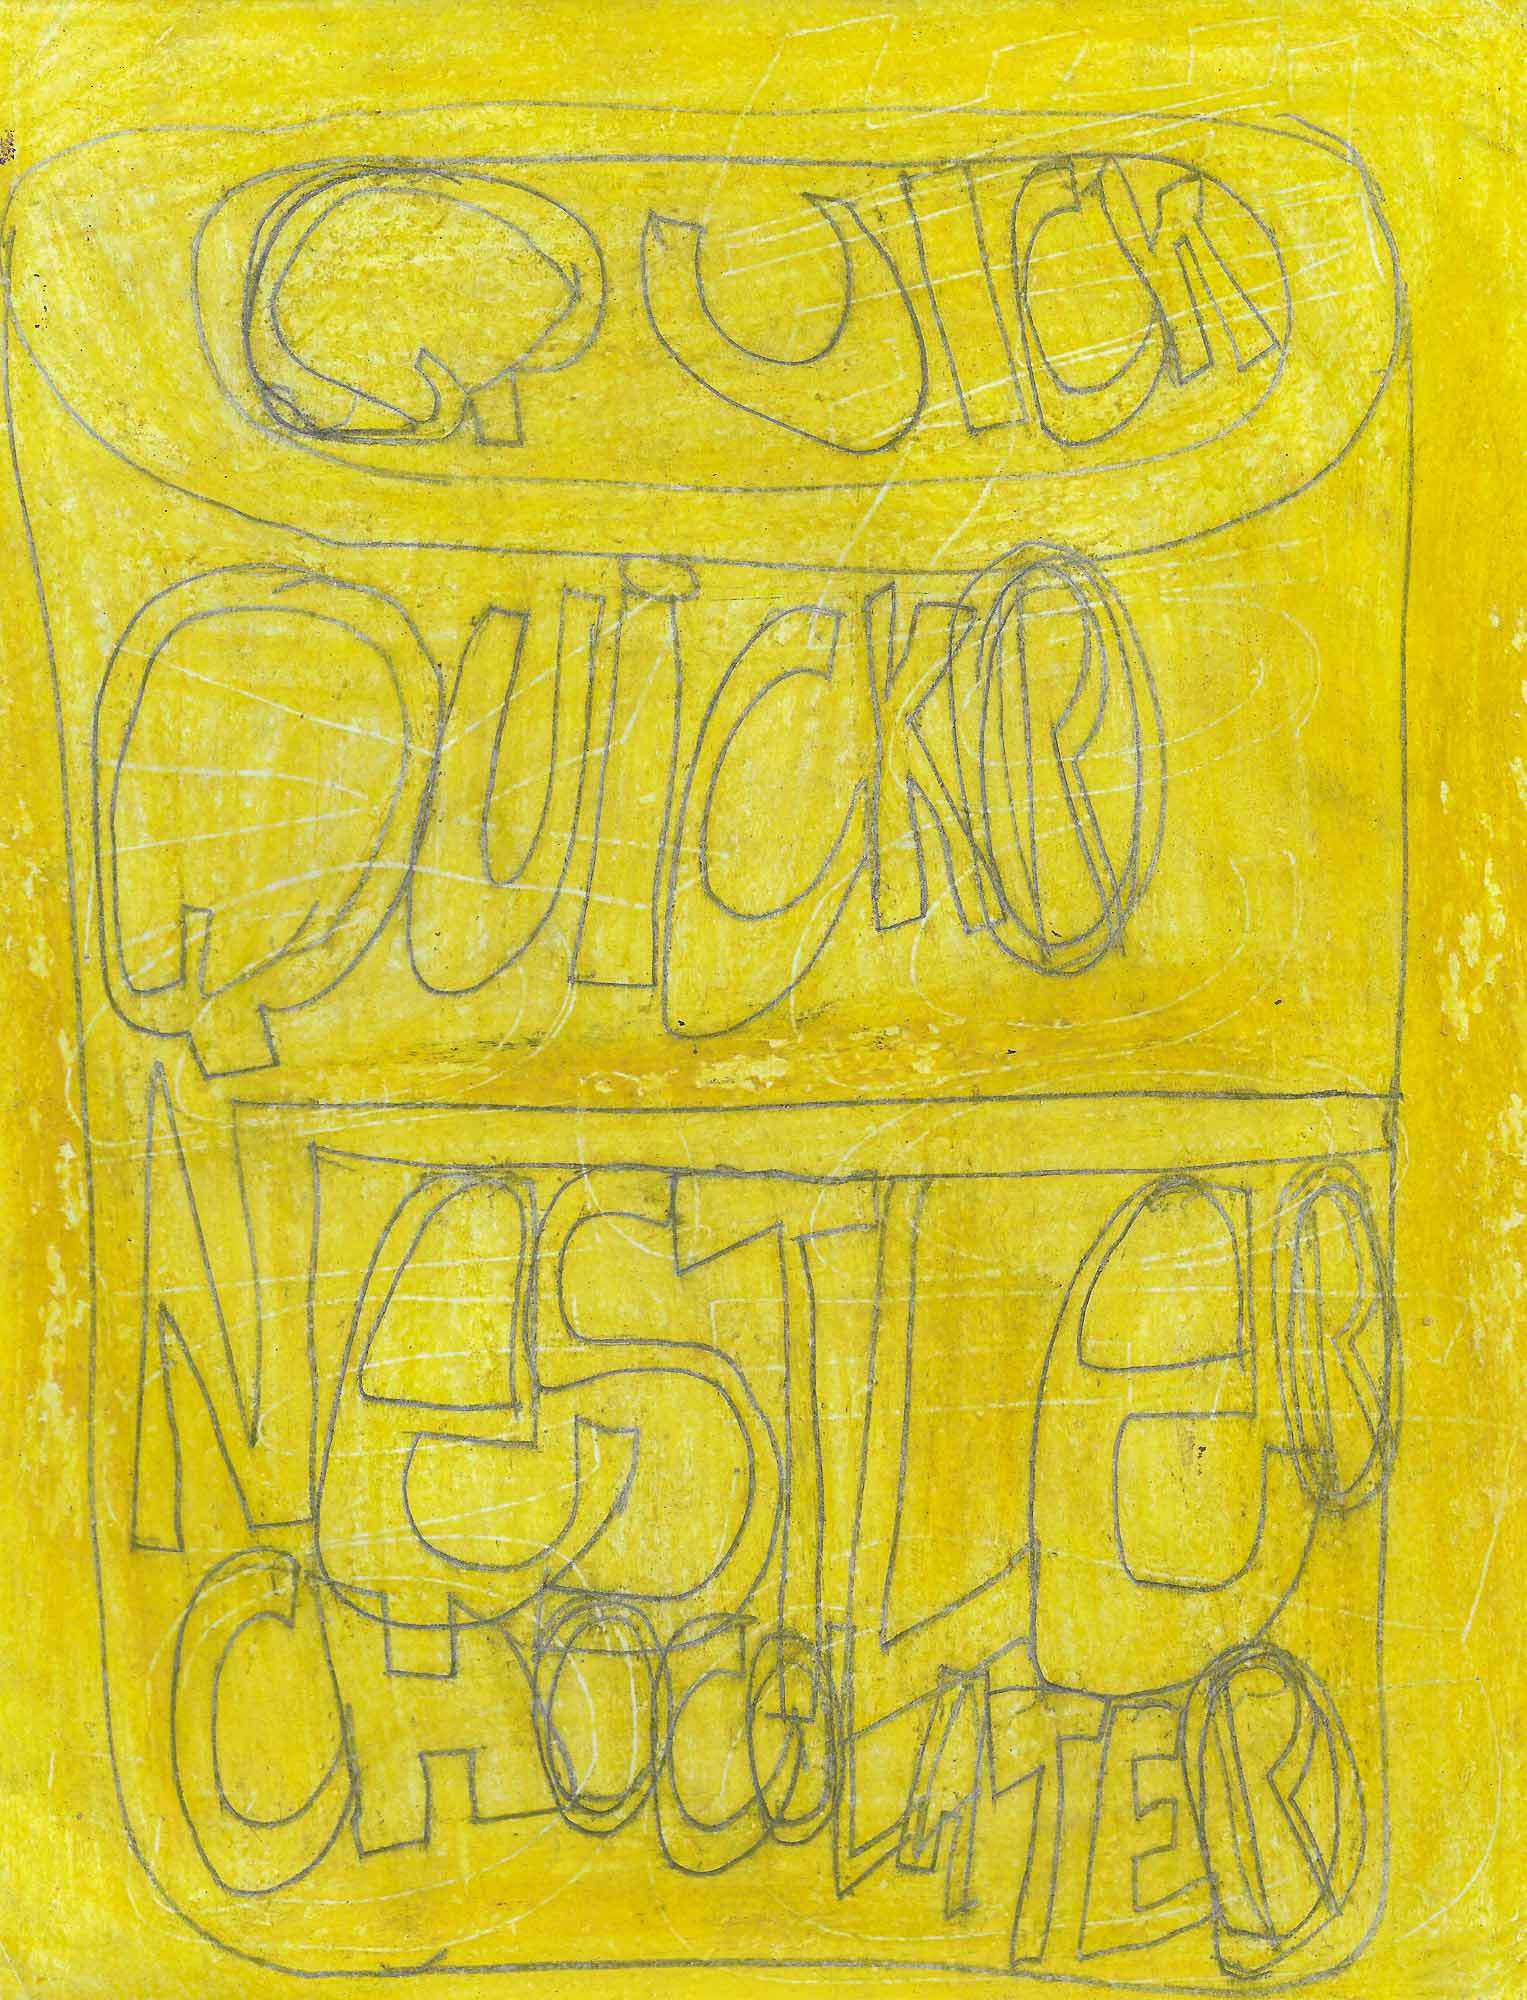 QUICK
QUICK®
NeSTLe®
CHOCOLATE®